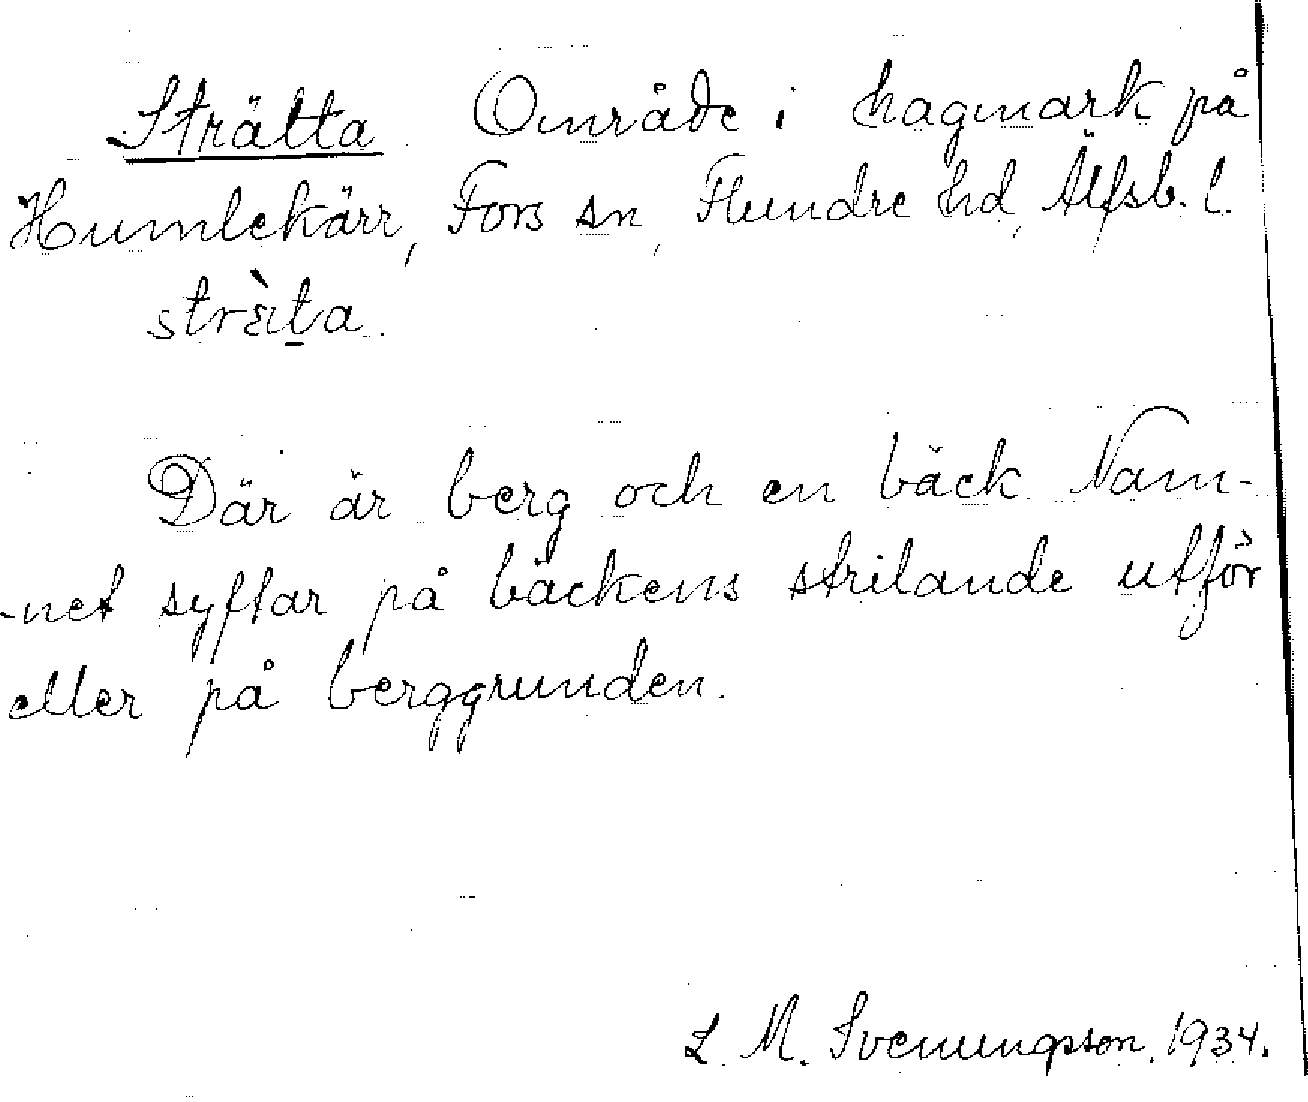 Strätta. Område i hagmark på
Humlekärr, Fors sn, Flundre hd, Älfsb. l.
strὲta.
Där är berg och en bäck. Nam-
-net syftar på bäckens strilande utför
eller på berggrunden.
L. M. Svenungsson. 1934.